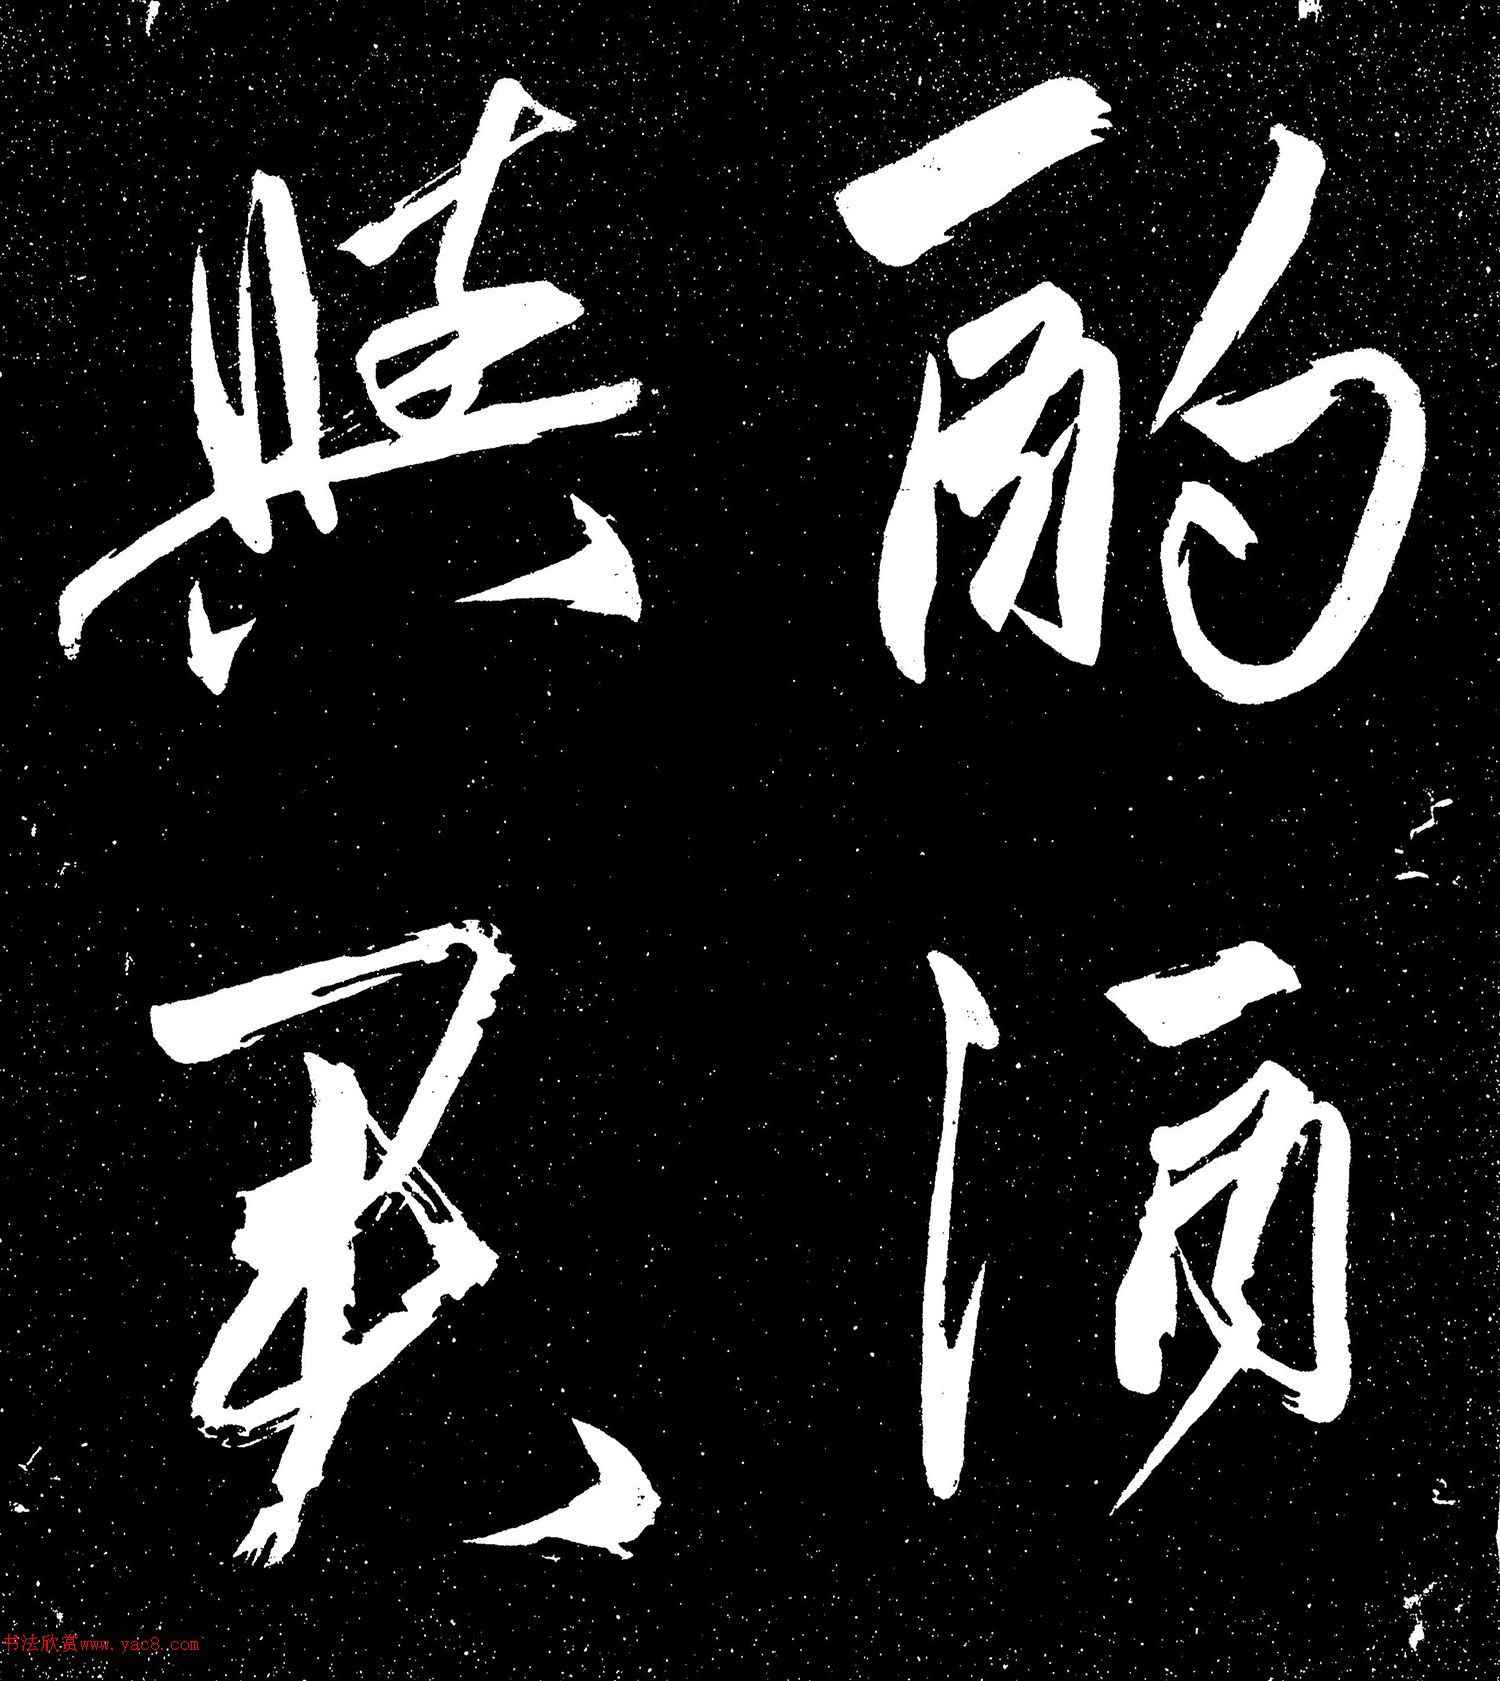 酌酒
與君
书法欣赏www.yac8.com